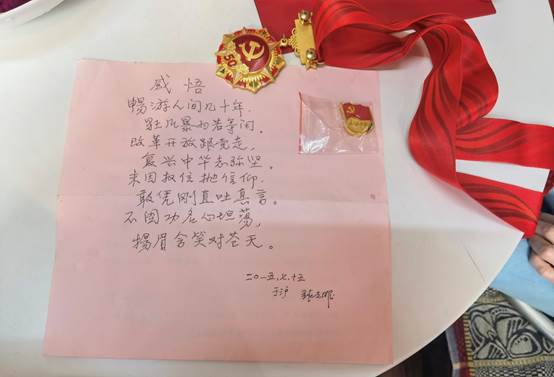 感悟
暢游人间几十年.
狂风暴雨若等闲。
改革开放跟党走,
复兴中华志弥坚。
未因权位抛信仰.
敢凭刚直吐真言。
不图功名心坦荡,
揚眉含笑对苍天。
二〇一五.七.十五
于沪
50